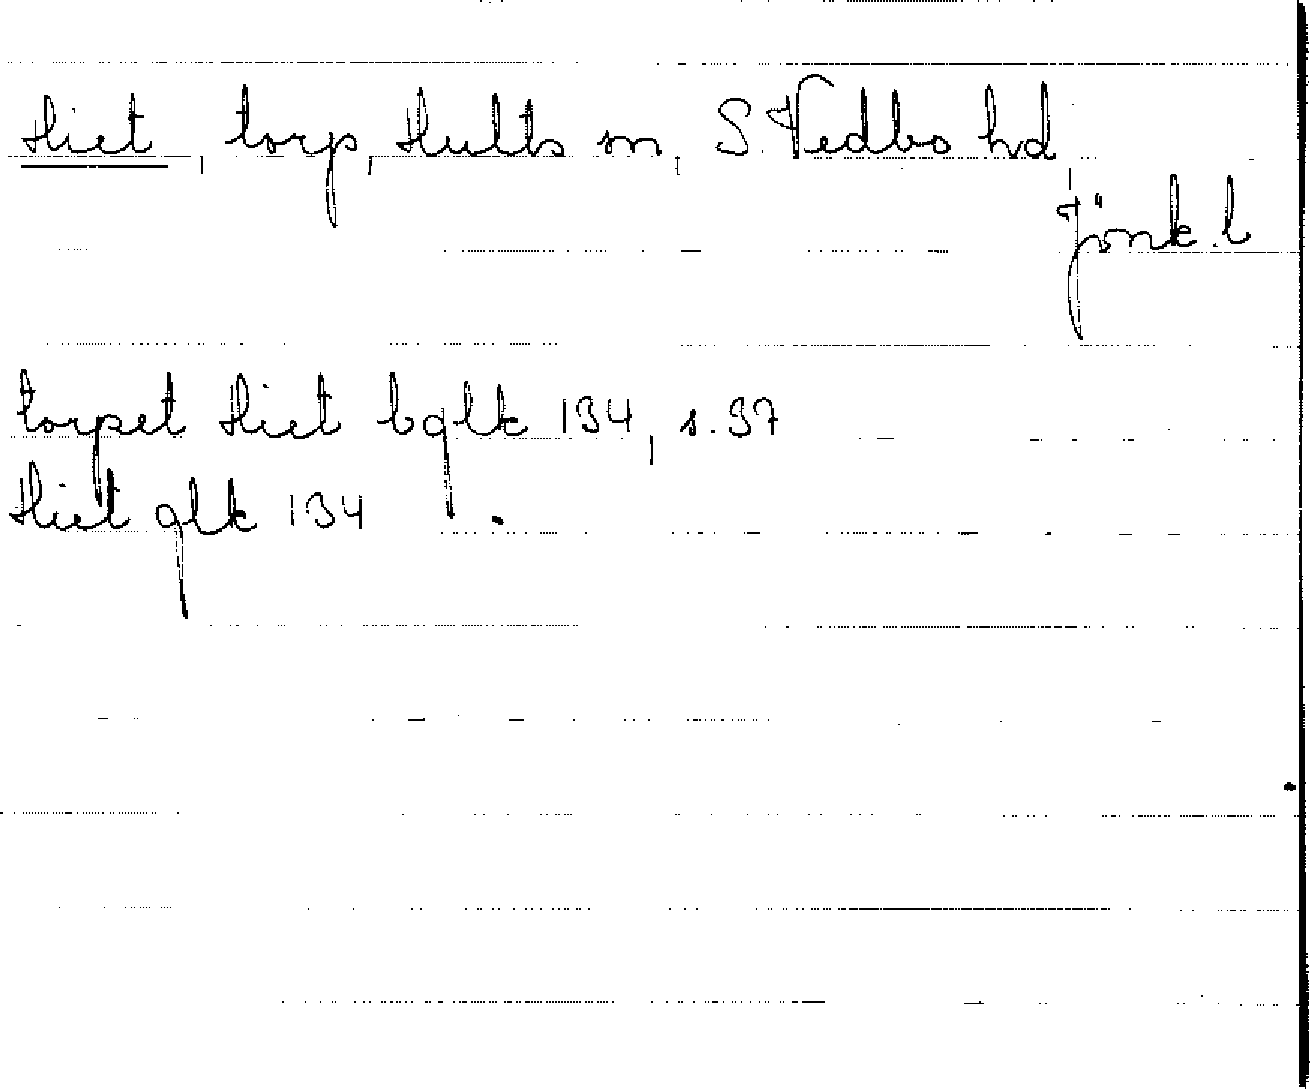 Hiet, torp, Hults sn, S. Vedbo hd,
Jönk. l
torpet Hiet bglk 134, s. 37
Hiet glk 134